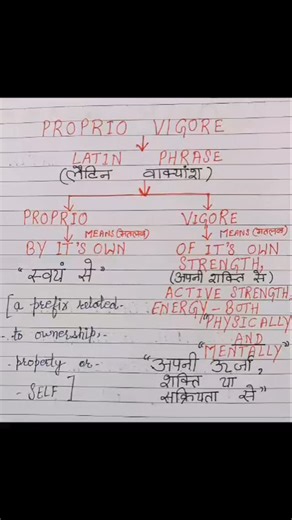 PROPRIO VIGORE
LATIN PHRASE
(लैटिन वाक्यांश)
PROPRIO VIGORE
MEANS (मतलब) MEANS (मतलब)
BY IT'S OWN
"स्वयं से"
[a prefix related-
- to ownership,-
- property or -
- SELF]
OF IT'S OWN
STRENGTH,
(अपनी शक्ति से)
ACTIVE STRENGTH,
ENERGY - BOTH
"PHYSICALLY
AND
MENTALLY"
"अपनी ऊर्जा,
शक्ति या
सक्रियता से"